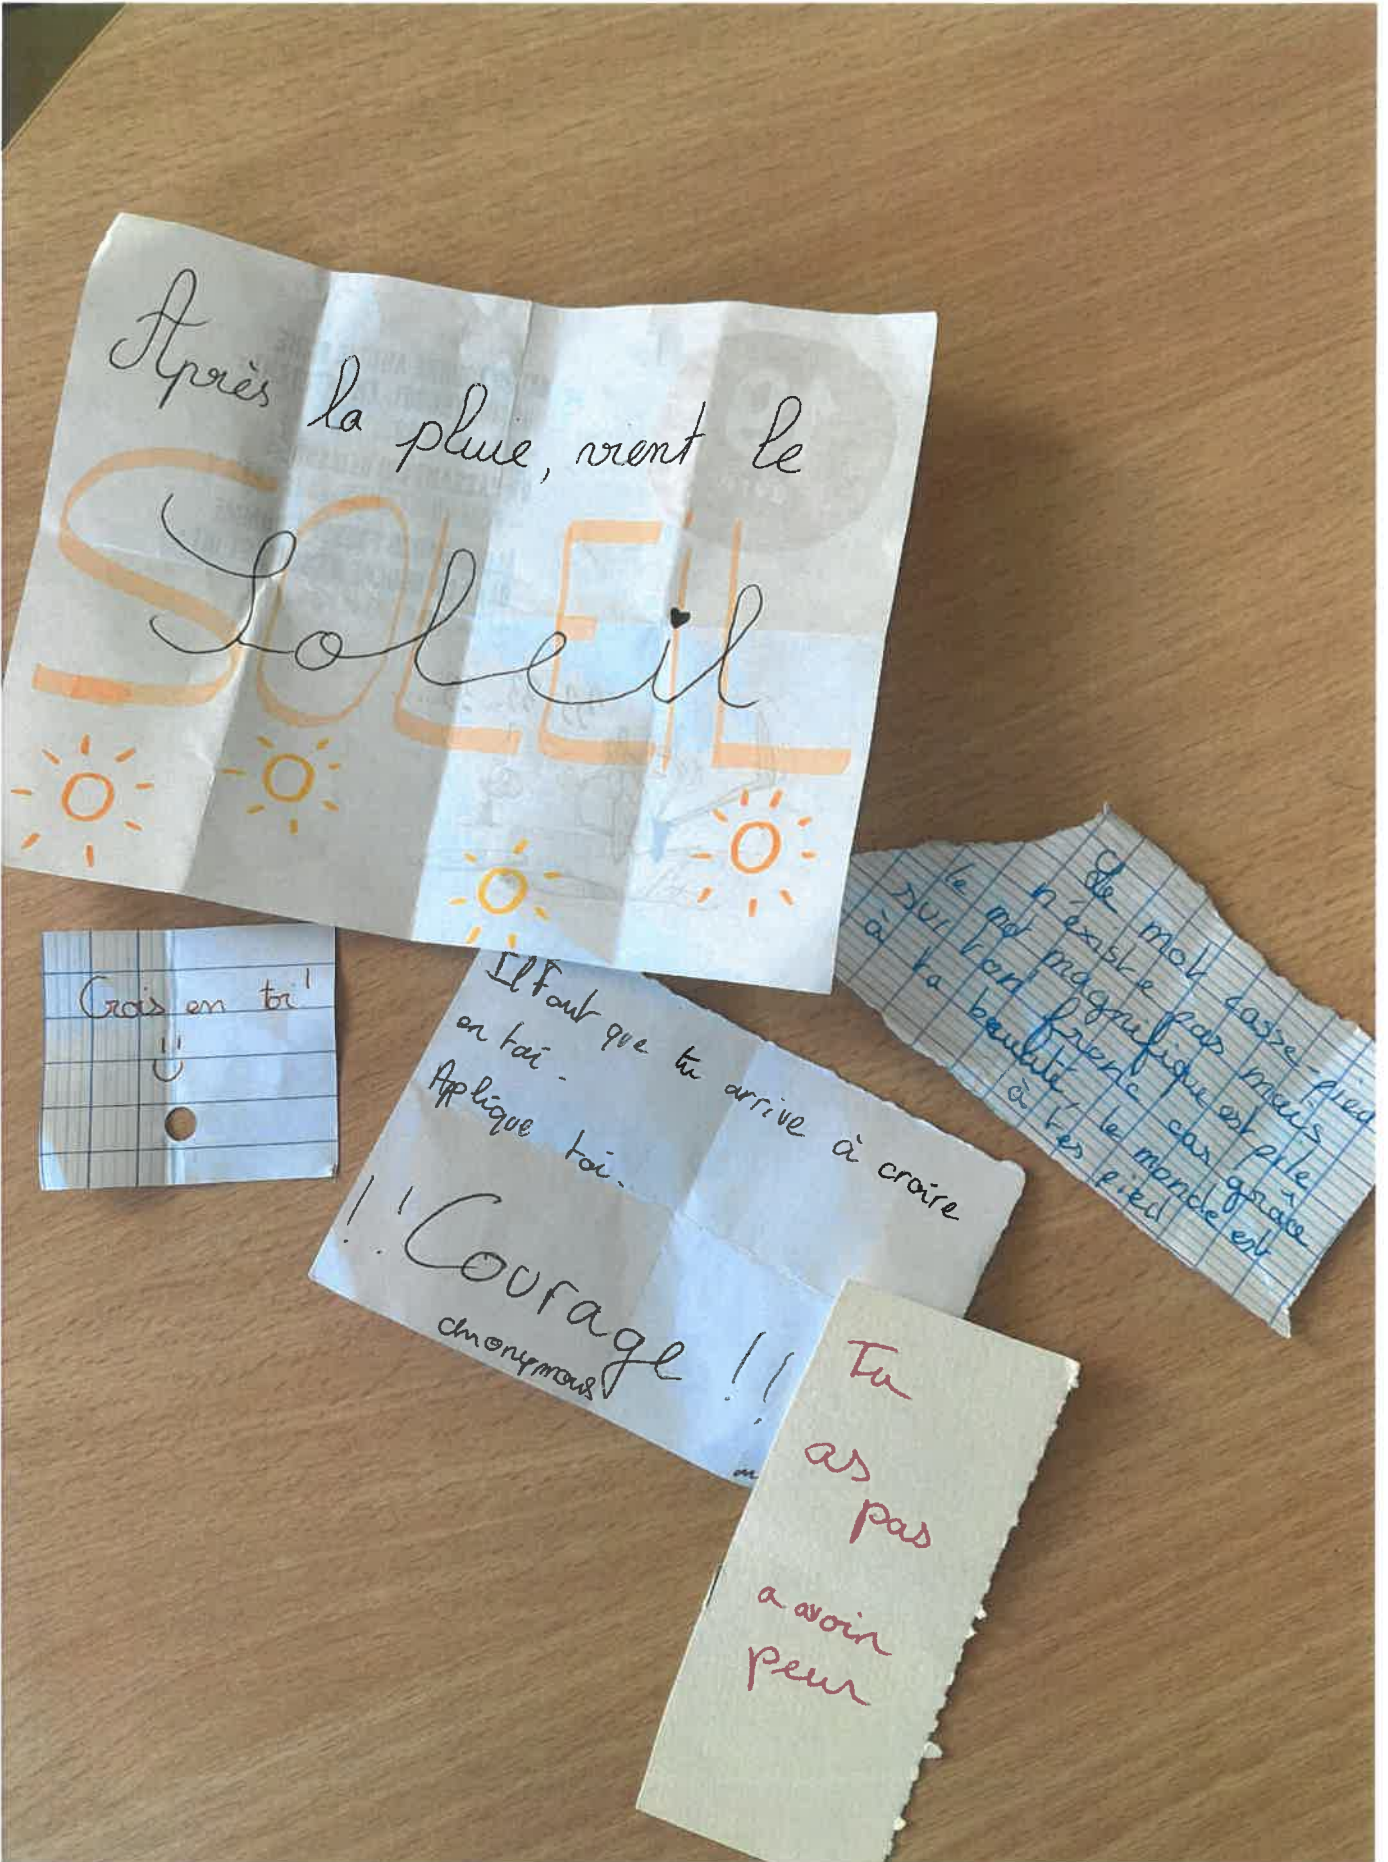 Après la pluie, vient le
SOLEIL
Soleil
Crois en toi!
Il Faut que tu arrive à croire
en toi.
Applique toi.
!! Courage !!
Anonymous
Le mot casse-pied
n'existe pas mais
le mot magnifique est pile
sur ton front car grâce
à ta beauté, le monde est
à tes pied
Tu
as
pas
a avoir
peur